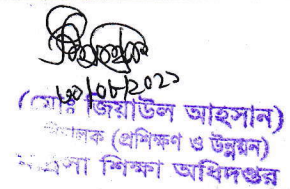 ৩০/০৮/২০২১
(মোঃ জিয়াউল আহসান)
পরিচালক (প্রশিক্ষণ ও উন্নয়ন)
মাদ্রাসা শিক্ষা অধিদপ্তর